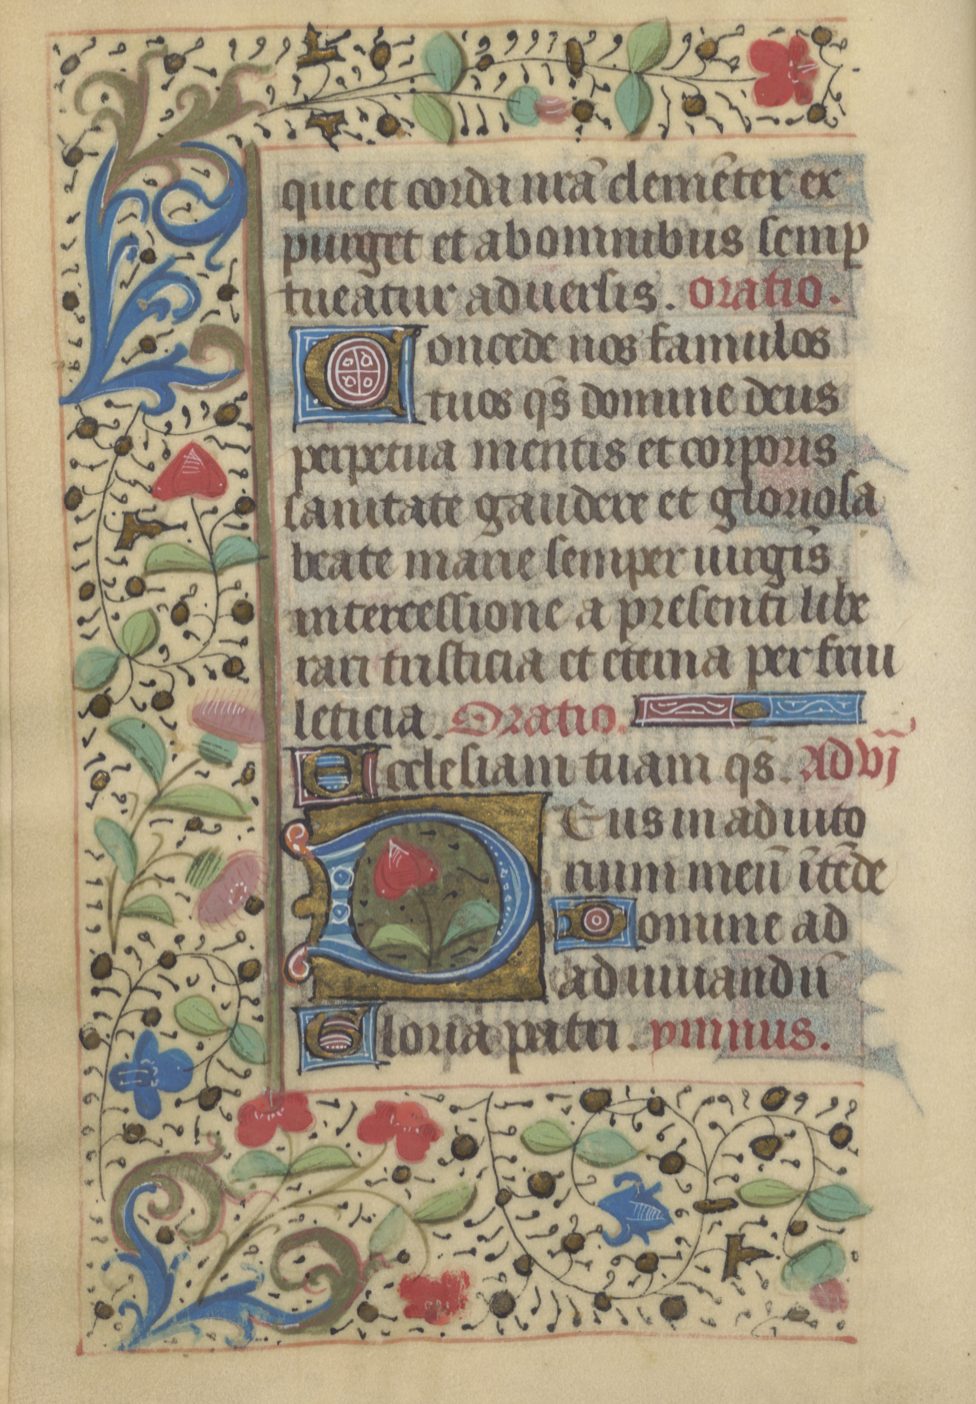 que et corda nrā clemēter ex
purget et ab omnibus semp
tueatur adversis. oratio.
Concede nos famulos
tuos qs̄ domine deus
perpetua mentis et corporis
sanitate gaudere et gloriosa
beate marie semper virgīs
intercessione a presenti libe
rari tristicia et eterna perfrui
leticia. Oratio.
Ecclesiam tuam qs̄. Ad vj̄
Deus in adiuto
rium meū ītēde
Domine ad
adiuuandū
Gloria patri. ymnus.